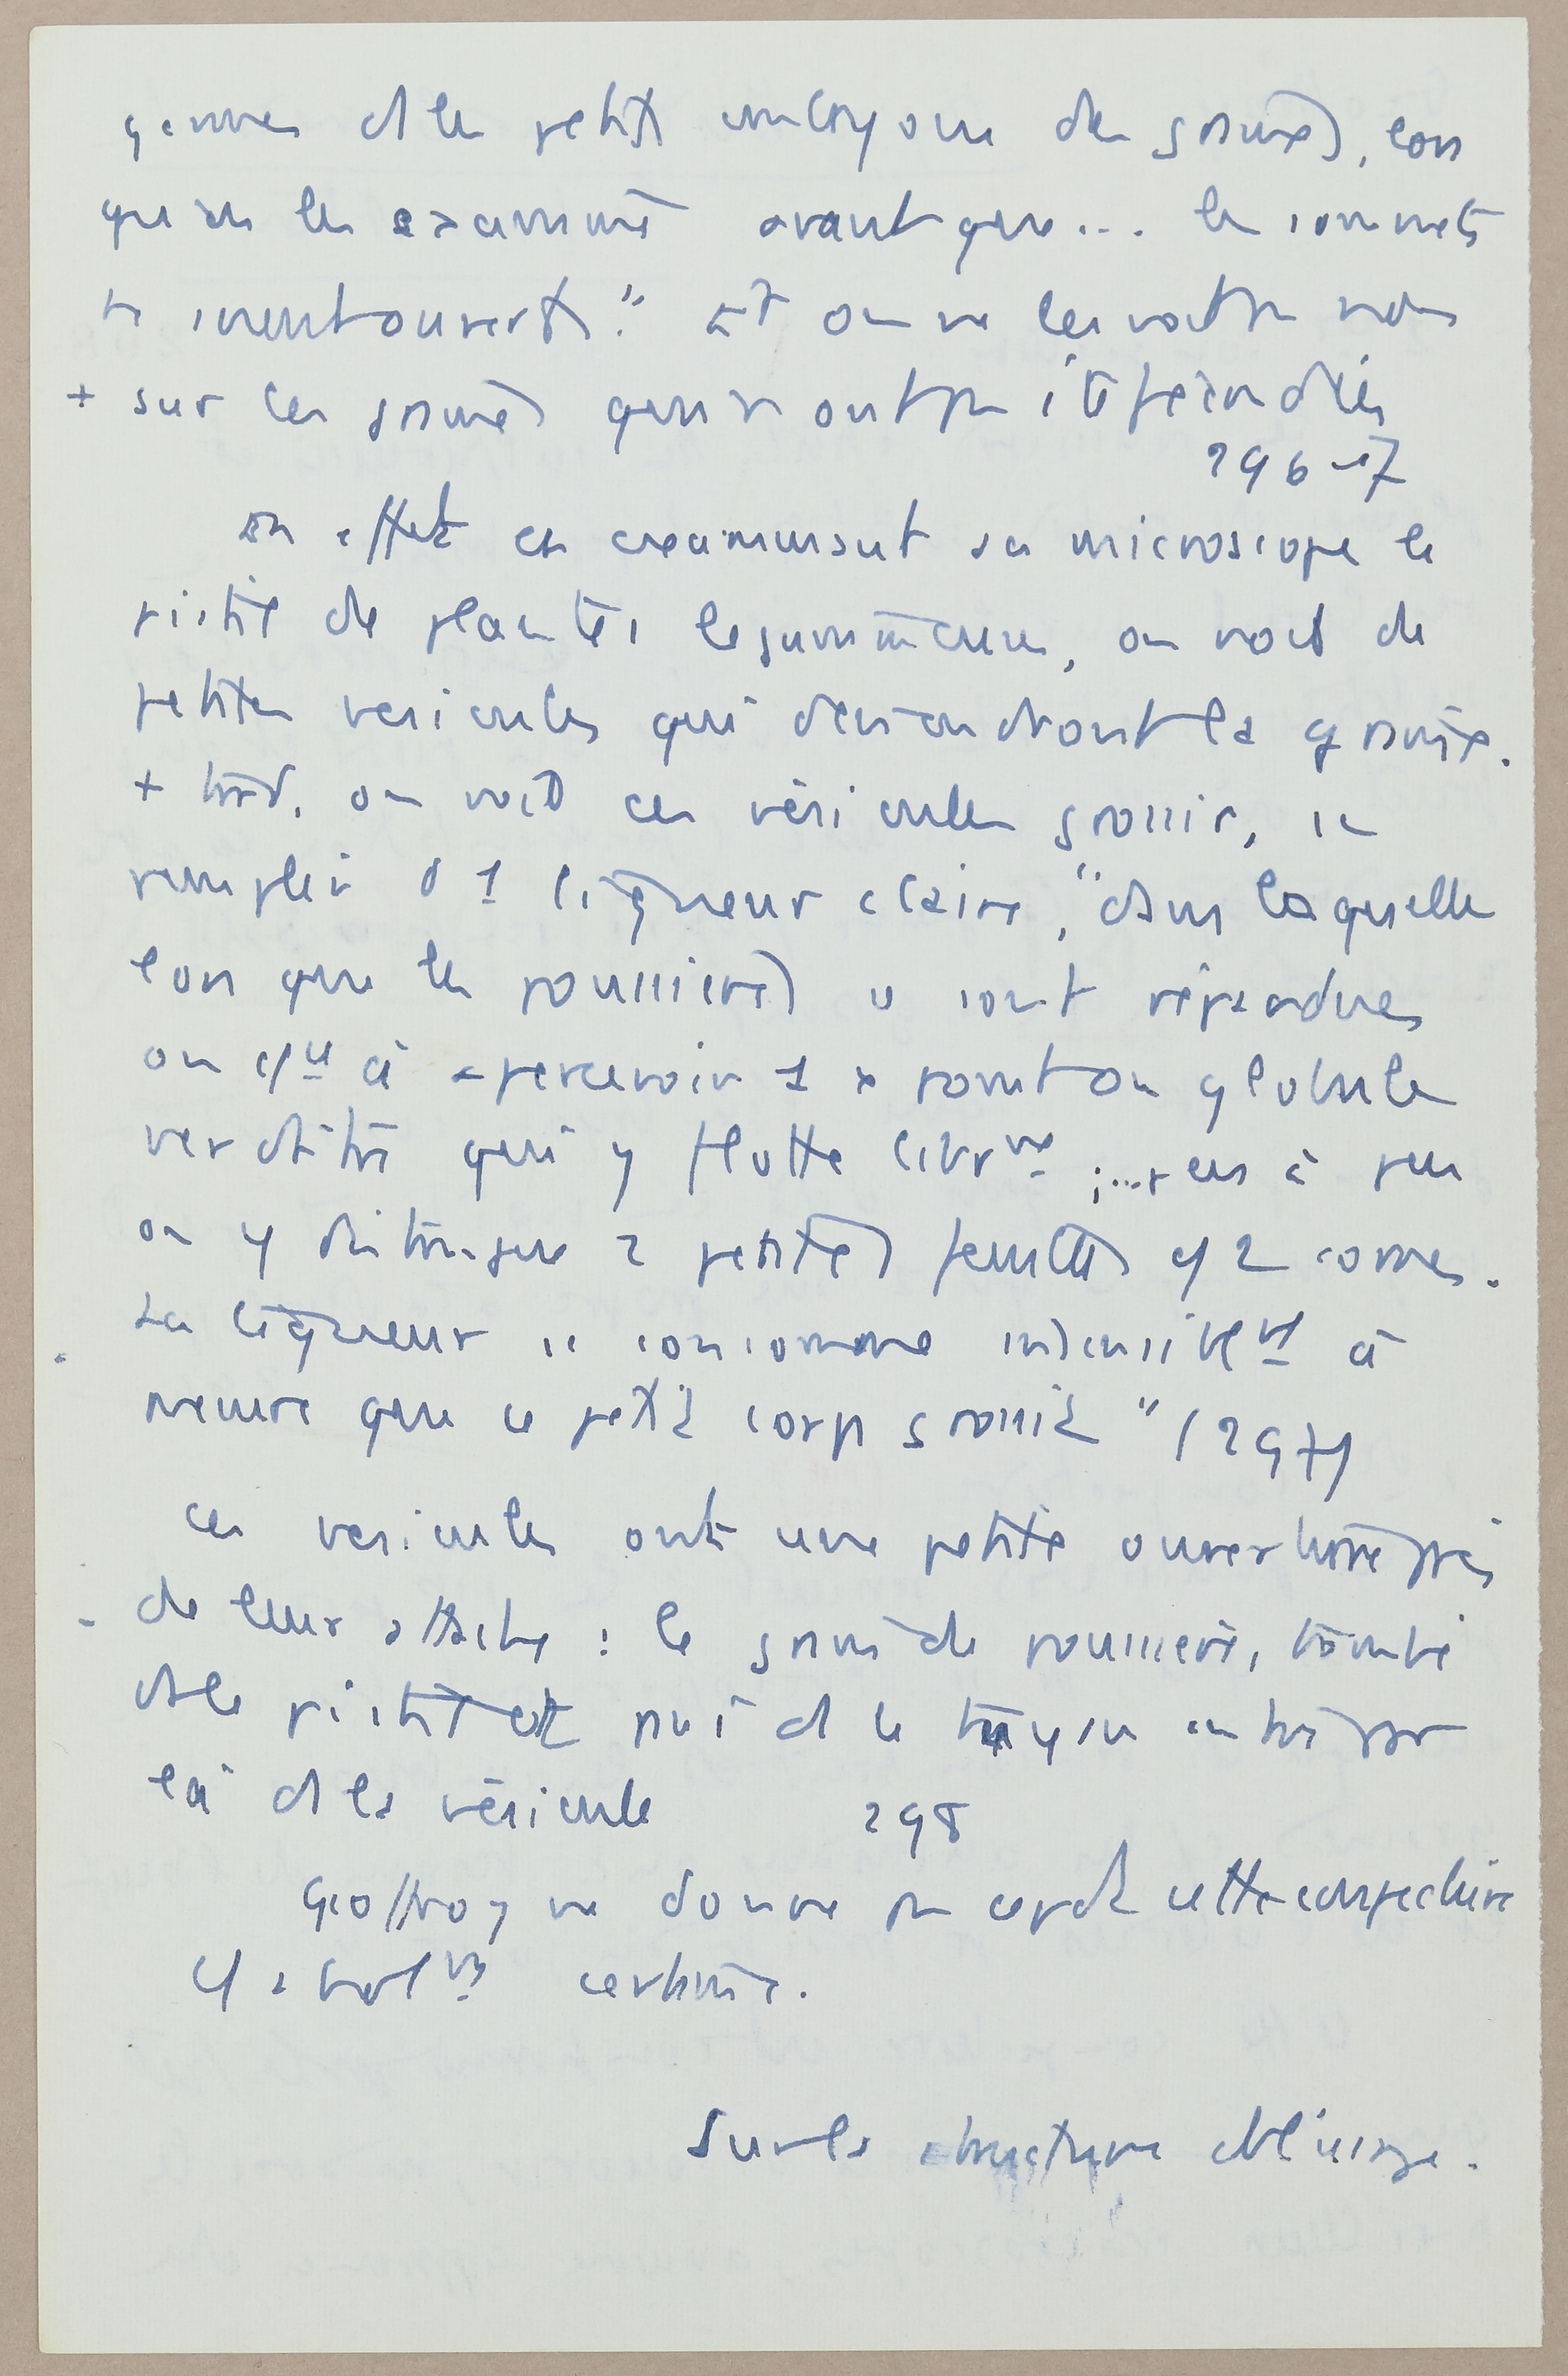 germes ds les petits embryons des graines, lors
qu'on les examine avant que... les sommets
se soient ouverts." Et on ne les voit pas non
+ sur les graines qui n'ont pas été fécondées
296-7
En effet en examinant au microscope le
pistil de plantes légumineuses, on voit de
petites vésicules qui deviendront la graine.
+ tard, on voit ces vésicules grossir, se
remplir d'1 liqueur claire, "dans laquelle
lors que les poussières se sont répandues
on à apercevoir 1 point ou globule
verdâtre qui y flotte librmt ;... peu à peu
on y distingue 2 petites feuilles cô 2 cornes.
La liqueur se consomme insensiblt à
mesure que ce petit corps grossit" (297)
Ces vésicules ont une petite ouverture près
de leur attache : le grain de poussière, tombé
ds le pistil et puis ds le tuyau entre par
là ds la vésicule 298
Geoffroy ne donne pas cepdt cette conjecture
cô certaine.
Sur la structure et l'usage.